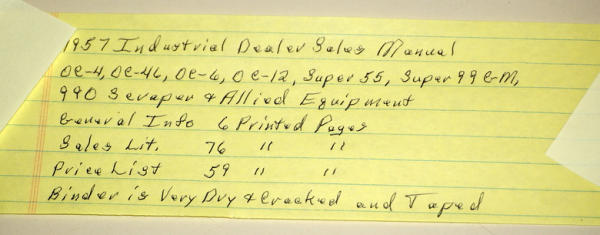 1957 Industrial Dealer Sales Manual
OC-4, OC-46, OC-6, OC-12, Super 55, Super 99 GM,
990 Scraper & Allied Equipment
General Info 6 Printed Pages
Sales Lit. 76 " "
Price List 59 " "
Binder is Very Dry & Cracked and Taped